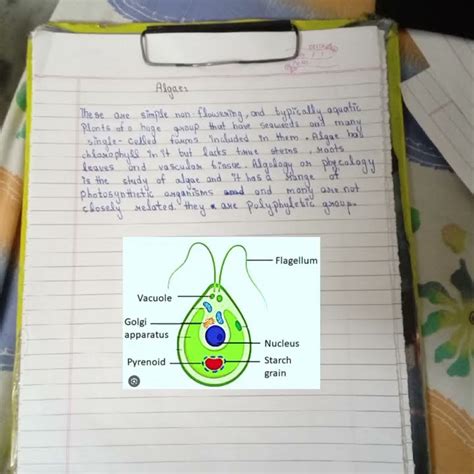 Algae:
These are simple non flowering, and typically aquatic
Plants of a huge group that have seaweds and many
single-celled forms included in them. Algae has
chlorophyll in it but lacks true stems, roots
leaves and vascular tissue. Algology or phycology
is the study of algae and it has a range of
photosynthetic organisms and many are not
closely related. they are polyphyletic group.
Flagellum
Vacuole
Golgi
apparatus
Nucleus
Pyrenoid
Starch
grain